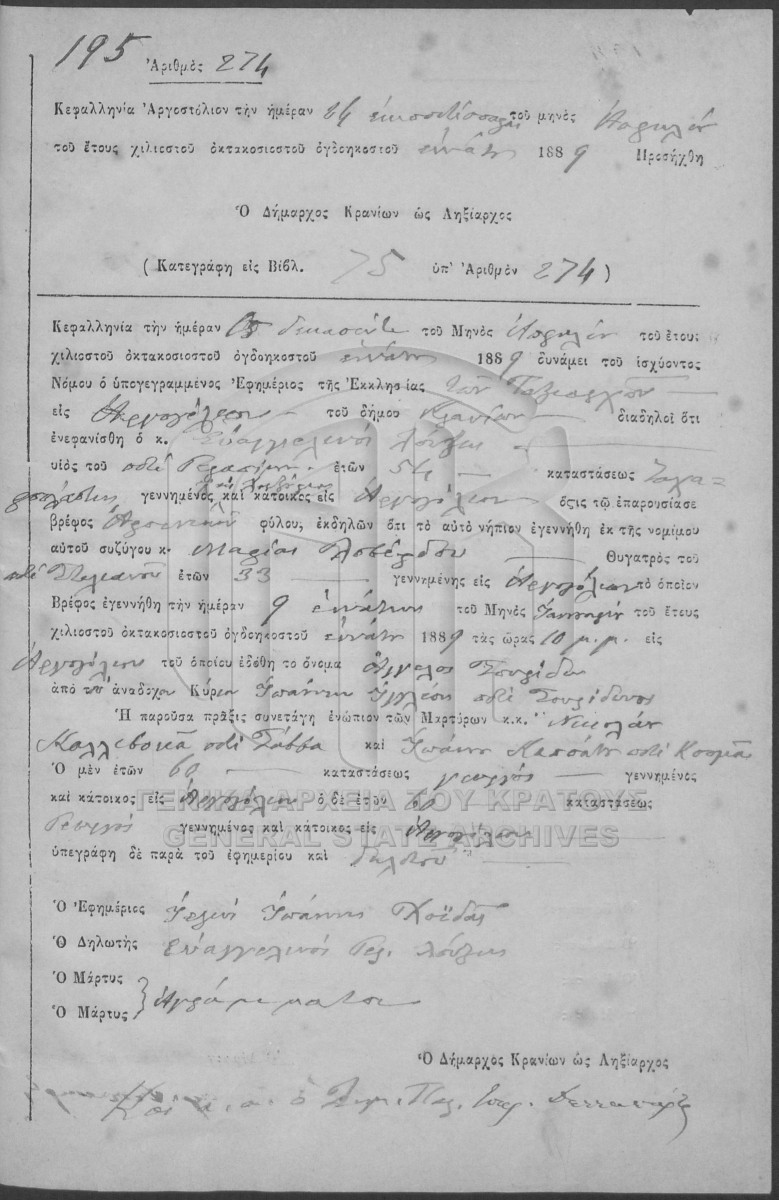 195
Ἀριθμὸς 274
Κεφαλληνία Ἀργοστόλιον τὴν ἡμέραν 24 τοῦ μηνὸς
τοῦ ἔτους χιλιοστοῦ ὀκτακοσιοστοῦ ὀγδοηκοστοῦ ἐννάτου 1889 Προσήχθη
Ὁ Δήμαρχος Κρανίων ὡς Ληξίαρχος
(Κατεγράφη εἰς Βιβλ. 75 ὑπ' Ἀριθμὸν 274)
Κεφαλληνία τὴν ἡμέραν 15 τοῦ Μηνὸς Ἀπριλίου τοῦ ἔτους
χιλιοστοῦ ὀκτακοσιοστοῦ ὀγδοηκοστοῦ ἐννάτου 1889 δυνάμει τοῦ ἰσχύοντος
Νόμου ὁ ὑπογεγραμμένος Ἐφημέριος τῆς Ἐκκλησίας τῶν Ταξιαρχῶν
εἰς Ἀργοστόλιον τοῦ δήμου Κρανίων διαδηλοῖ ὅτι
ἐνεφανίσθη ὁ κ. Εὐαγγελινὸς
υἱὸς τοῦ ποτὲ Γερασίμου ἐτῶν 54 καταστάσεως
γεννημένος καὶ κάτοικος εἰς Ἀργοστόλιον ὅςτις τῷ ἐπαρουσίασε
βρέφος Ἀρσενικοῦ φύλου, ἐκδηλῶν ὅτι τὸ αὐτὸ νήπιον ἐγεννήθη ἐκ τῆς νομίμου
αὐτοῦ συζύγου κ. Μαρίας Λοβέρδου Θυγατρὸς τοῦ
ποτὲ Στυλιανοῦ ἐτῶν 33 γεννημένης εἰς Ἀργοστόλιον τὸ ὁποῖον
Βρέφος ἐγεννήθη τὴν ἡμέραν 9 ἐννάτην τοῦ Μηνὸς τοῦ ἔτους
χιλιοστοῦ ὀκτακοσιοστοῦ ὀγδοηκοστοῦ ἐννάτου 1889 τὰς ὥρας 10 μ.μ. εἰς
Ἀργοστόλιον τοῦ ὁποίου ἐδόθη τὸ ὄνομα Ἄγγελος Σπυρίδων
ἀπὸ τὸν ἀνάδοχον Κύριον Ἰωάννην ποτὲ Σπυρίδωνος
Ἡ παροῦσα πρᾶξις συνετάγη ἐνώπιον τῶν Μαρτύρων κ.κ. Νικολάου
ποτὲ Σάββα καὶ Ἰωάννου ποτὲ Κοσμᾶ
Ὁ μὲν ἐτῶν 60 καταστάσεως γεωργὸς γεννημένος
καὶ κάτοικος εἰς Ἀργοστόλιον ὁ δὲ ἐτῶν 60 καταστάσεως
Γεωργὸς γεννημένος καὶ κάτοικος εἰς Ἀργοστόλιον
ὑπεγράφη δὲ παρὰ τοῦ ἐφημερίου καὶ δηλωτοῦ
ΓΕΝΙΚΑ ΑΡΧΕΙΑ ΤΟΥ ΚΡΑΤΟΥΣ
GENERAL STATE ARCHIVES
Ὁ Ἐφημέριος Ἰωάννης Χοϊδᾶς
Ὁ Δηλωτὴς Εὐαγγελινὸς Γερ.
Ὁ Μάρτυς
Ὁ Μάρτυς Ἀγράμματοι
Ὁ Δήμαρχος Κρανίων ὡς Ληξίαρχος